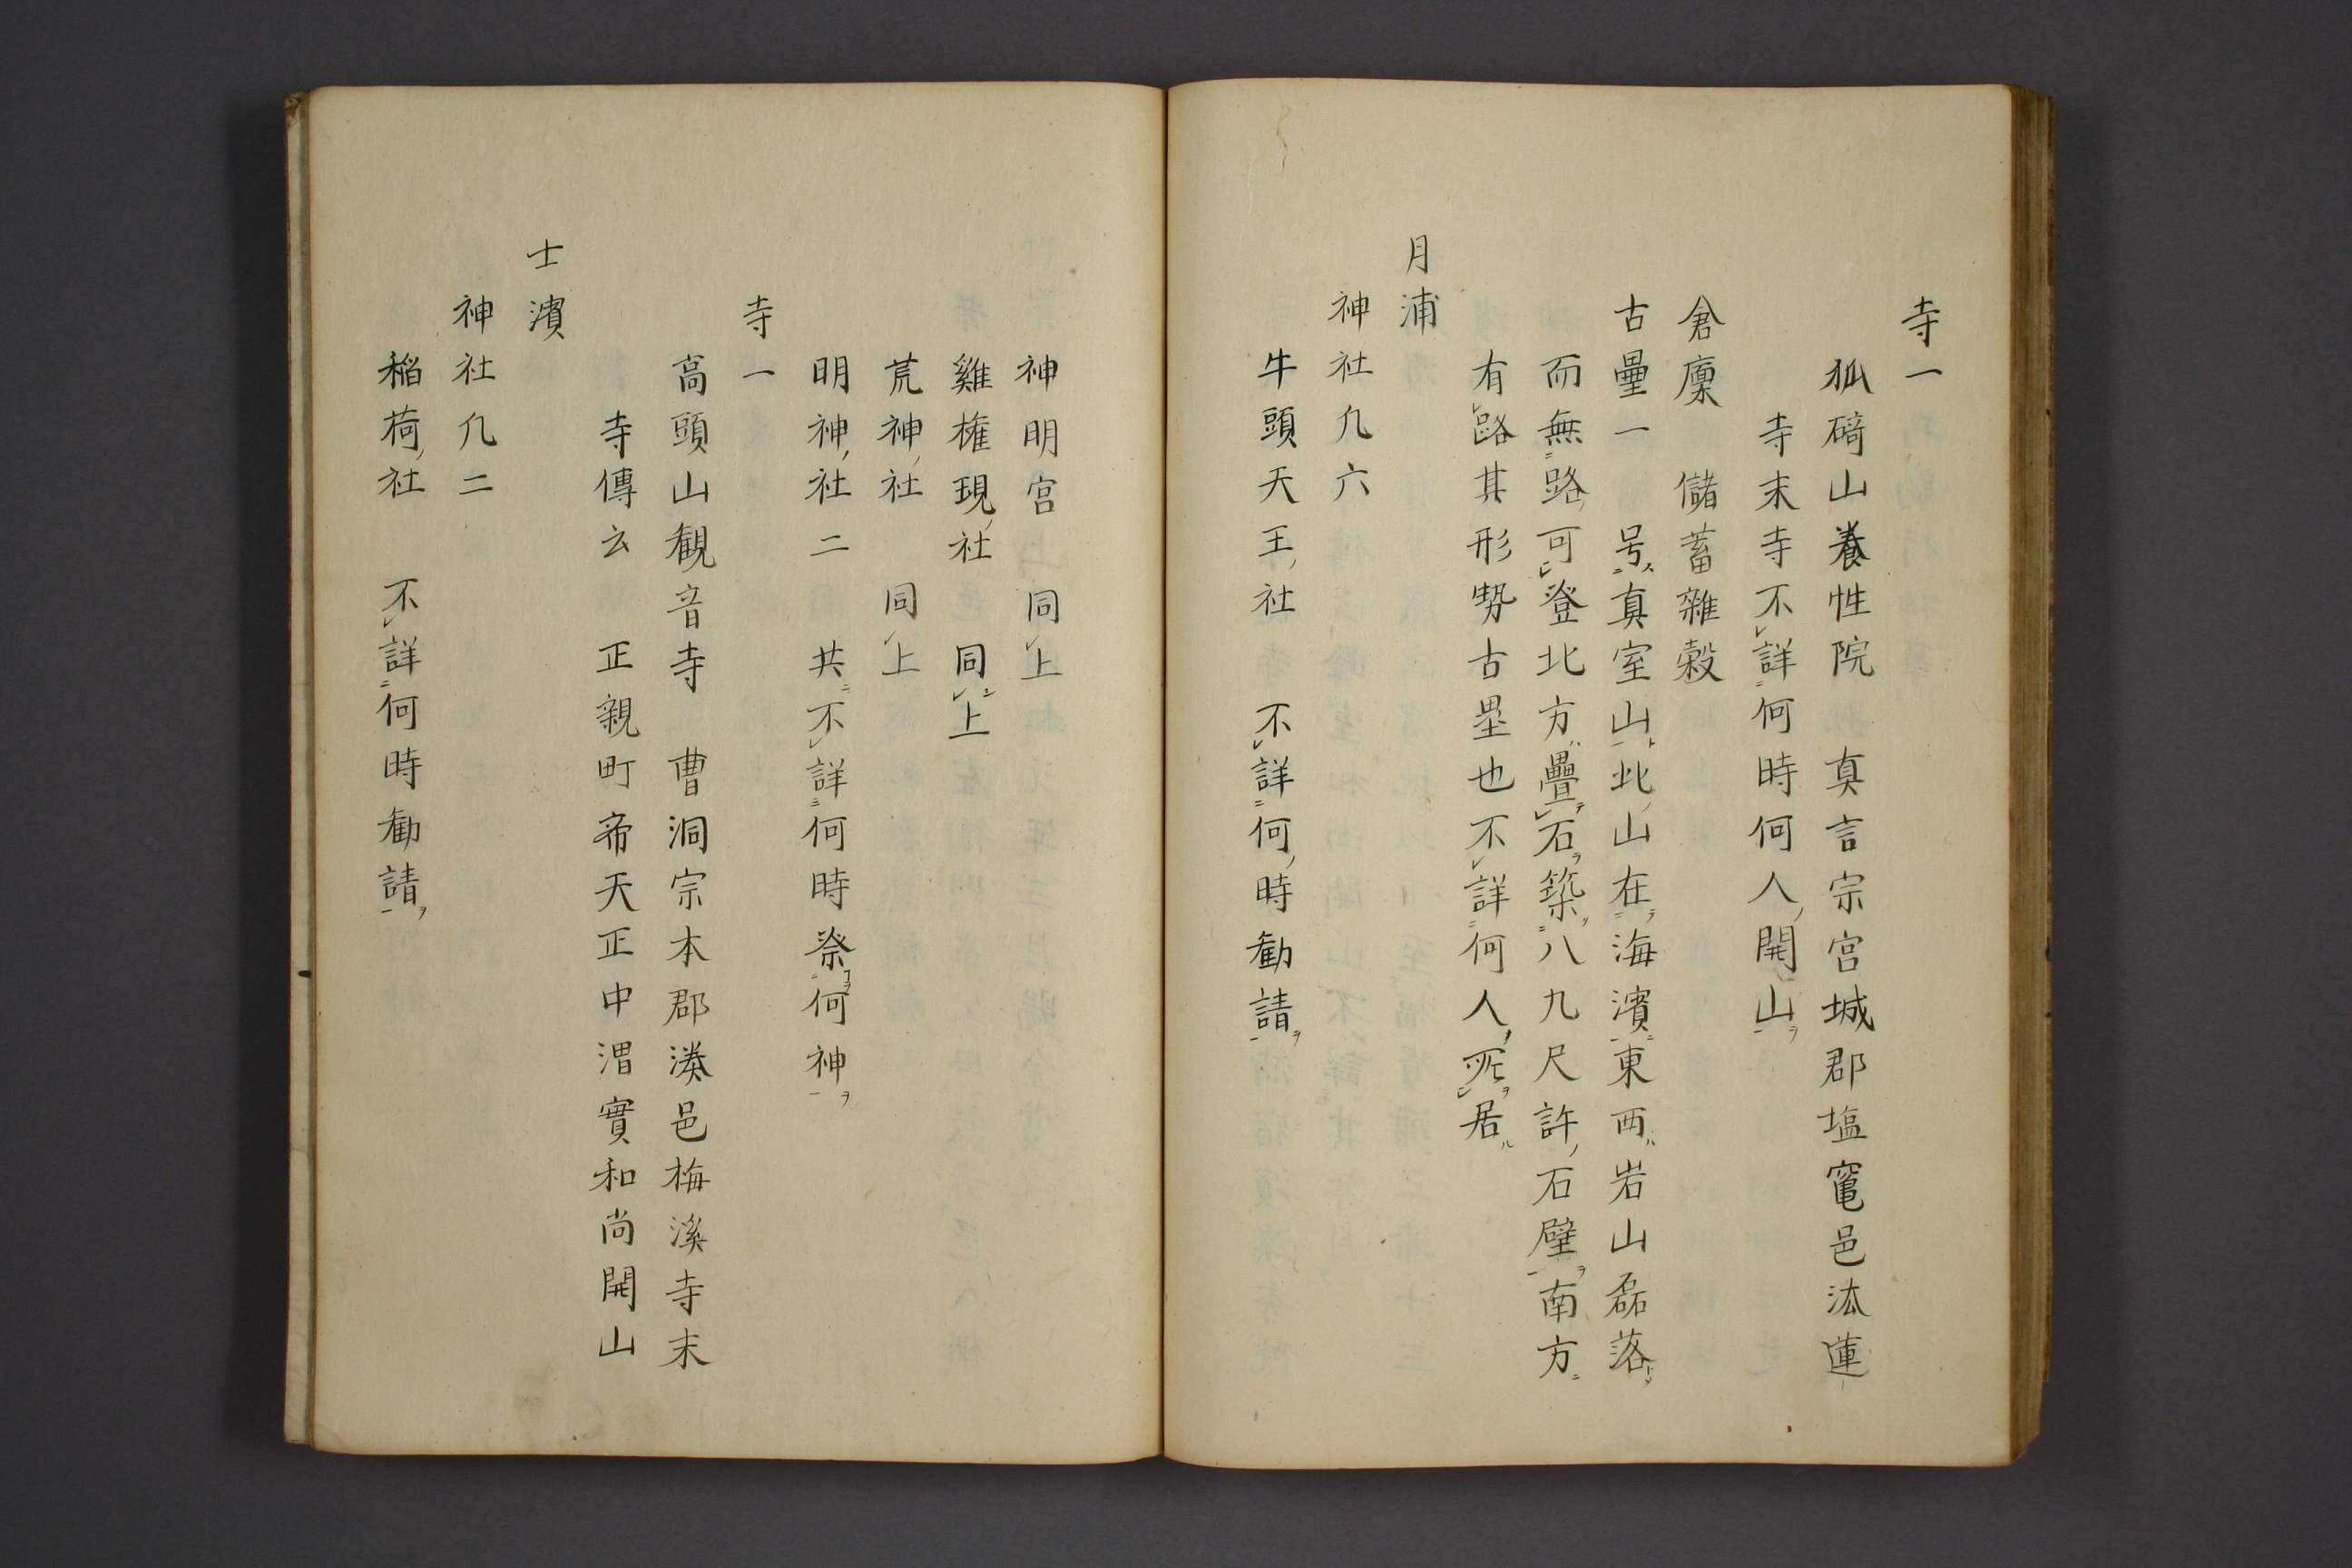 寺一
狐碕山養性院　真言宗宮城郡塩竃邑法蓮
寺末寺不詳何時何人開山
倉廩　儲蓄雜穀
古壘一　号真室山北山在海濱東西岩山磊落
而無路可登北方疊石築八九尺許石壁南方
有路其形勢古塁也不詳何人所居
月浦
神社凢六
牛頭天王社　不詳何時勸請
神明宮　同上
雞権現社　同上
荒神社　同上
明神社二　共不詳何時祭何神
寺一
高頭山観音寺　曹洞宗本郡湊邑梅溪寺末
寺傳云　正親町帝天正中湑實和尚開山
士濱
神社凢二
稲荷社　不詳何時勸請